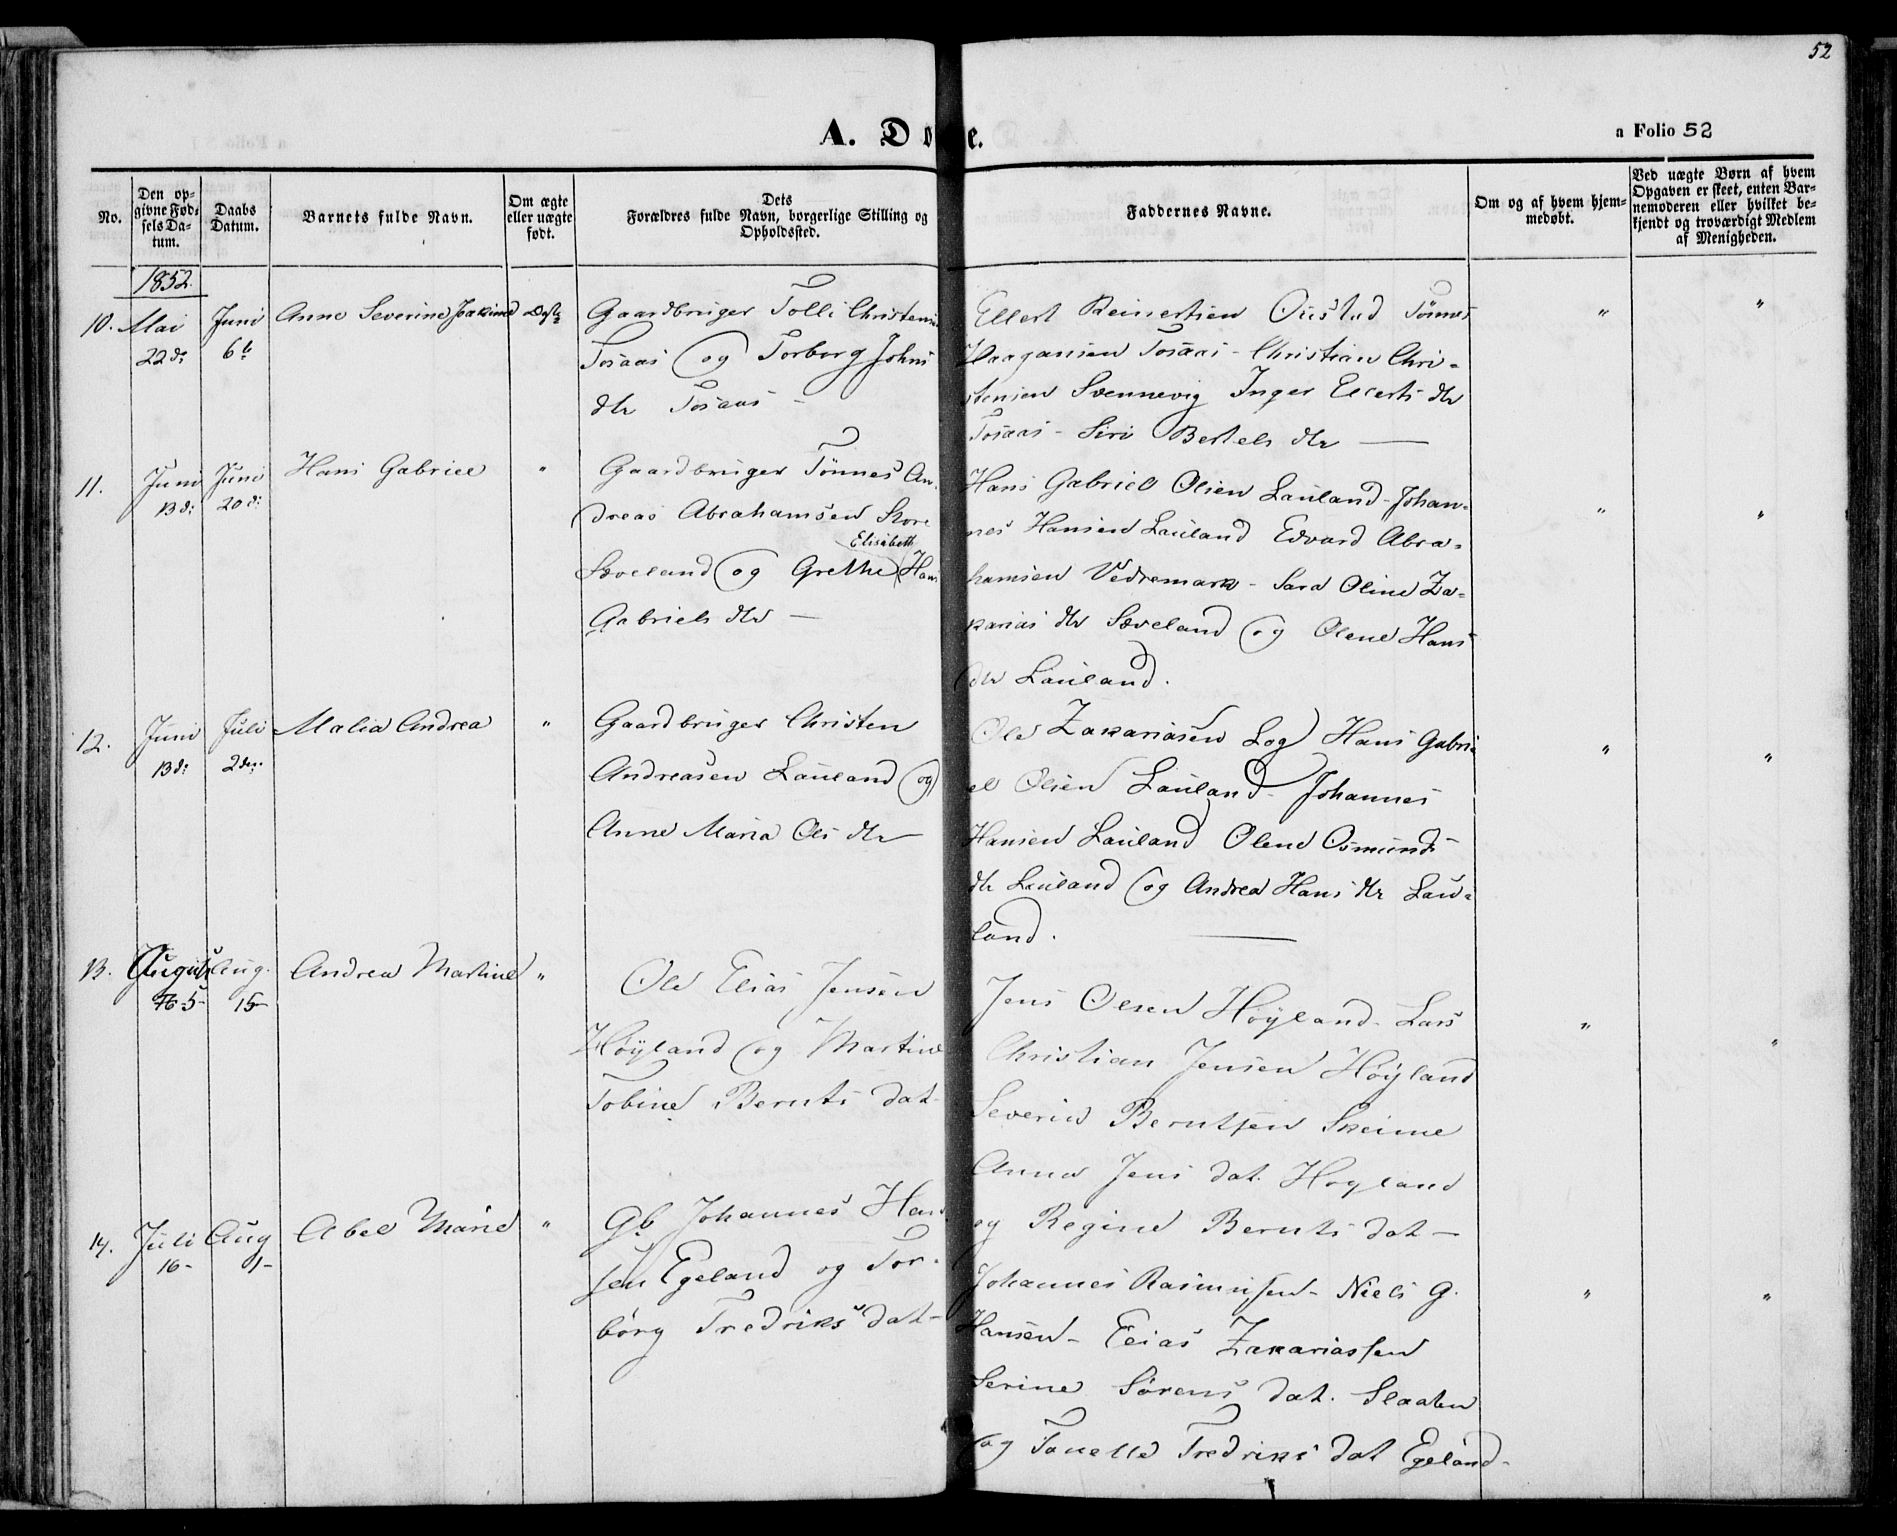 52
A. Døbte.
a Folio 52
No.
Den op-
givne Fød-
sels Da-
tum.
Daabs
Datum.
Barnets fulde Navn.
Om ægte
eller uægte
født.
Dets
Forældres fulde Navn, borgerlige Stilling og
Opholdssted.
Faddernes Navne.
Om og af hvem hjem-
medøbt.
Ved uægte Børn af hvem
Opgaven er skeet, enten Bar-
nemoderen eller hvilket be-
kjendt og troværdigt Medlem
af Menigheden.
1852.
10. Mai
22d:
Juni
6t
Anne Severine Joakime
Gaardbruger Tolli Christens
Tosaas og Torborg Johns
dtr Tosaas -
Ellert Reinertsen Ousted Tönnes
Haagansen Tosaas - Christian Chri-
stensen Svennevig Inger Ellerts dtr
Tosaas - Siri Bertels dtr —
" "
11. Juni
13d:
Juni
20d:
Hans Gabriel "
Gaardbruger Tönnes An-
dreas Abrahamsen Store
Elisabeth
Sæveland og Grethe Hans
Gabriels dtr —
Hans Gabriel Olsen Lauland - Johan-
nes Hansen Lauland Edvard Abra-
hamsen Vedremark - Sara Oline Za-
karias dtr Sæveland og Olene Hans
dtr Lauland.
" "
12. Juni
13d:
Juli
2den
Malia Andrea "
Gaardbruger Christen
Andreasen Lauland og
Anne Maria Ols dtr —
Ole Zakariasen Log Hans Gabri-
el Olsen Lauland - Johannes
Hansen Lauland Olene Osmunds
dtr Lauland og Andrea Hans dtr Lau-
land. —
" "
13. August
5-
Aug.
15-
Andrea Martine "
Ole Elias Jensen
Höyland og Martine
Tobine Bernts dat
Jens Olsen Höyland - Lars
Christian Jensen Höyland
Severin Berntsen Skeime
Anna Jens dat. Hoyland
og Regine Bernts dat —
" "
14. Juli
16-
Aug
1-
Abel Marie "
Gb. Johannes Han-
sen Egeland og Tor-
börg Fredriks dat -
Johannes Rasmussen - Niels G.
Hansen - Elias Zakariassen
Serine Sörens dat. Slaaten
og Tonette Fredriks dat Egeland -
" "